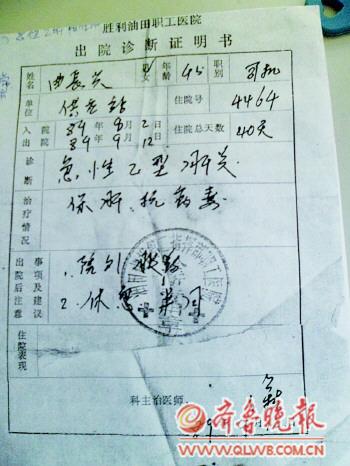 胜利油田职工医院
出院诊断证明书
姓名 长 男女 年龄 45 职别 司机
单位 供应站 住院号 4464
入院 89年8月2日 住院总天数 40天
出院 89年9月12日
诊断 急性乙型肝炎
治疗情况 保肝、抗病毒
出院后注意事项及建议 1. 院外
2. 休息
住院表现
科主治医师
齐鲁晚报
WWW.QLWB.COM.CN